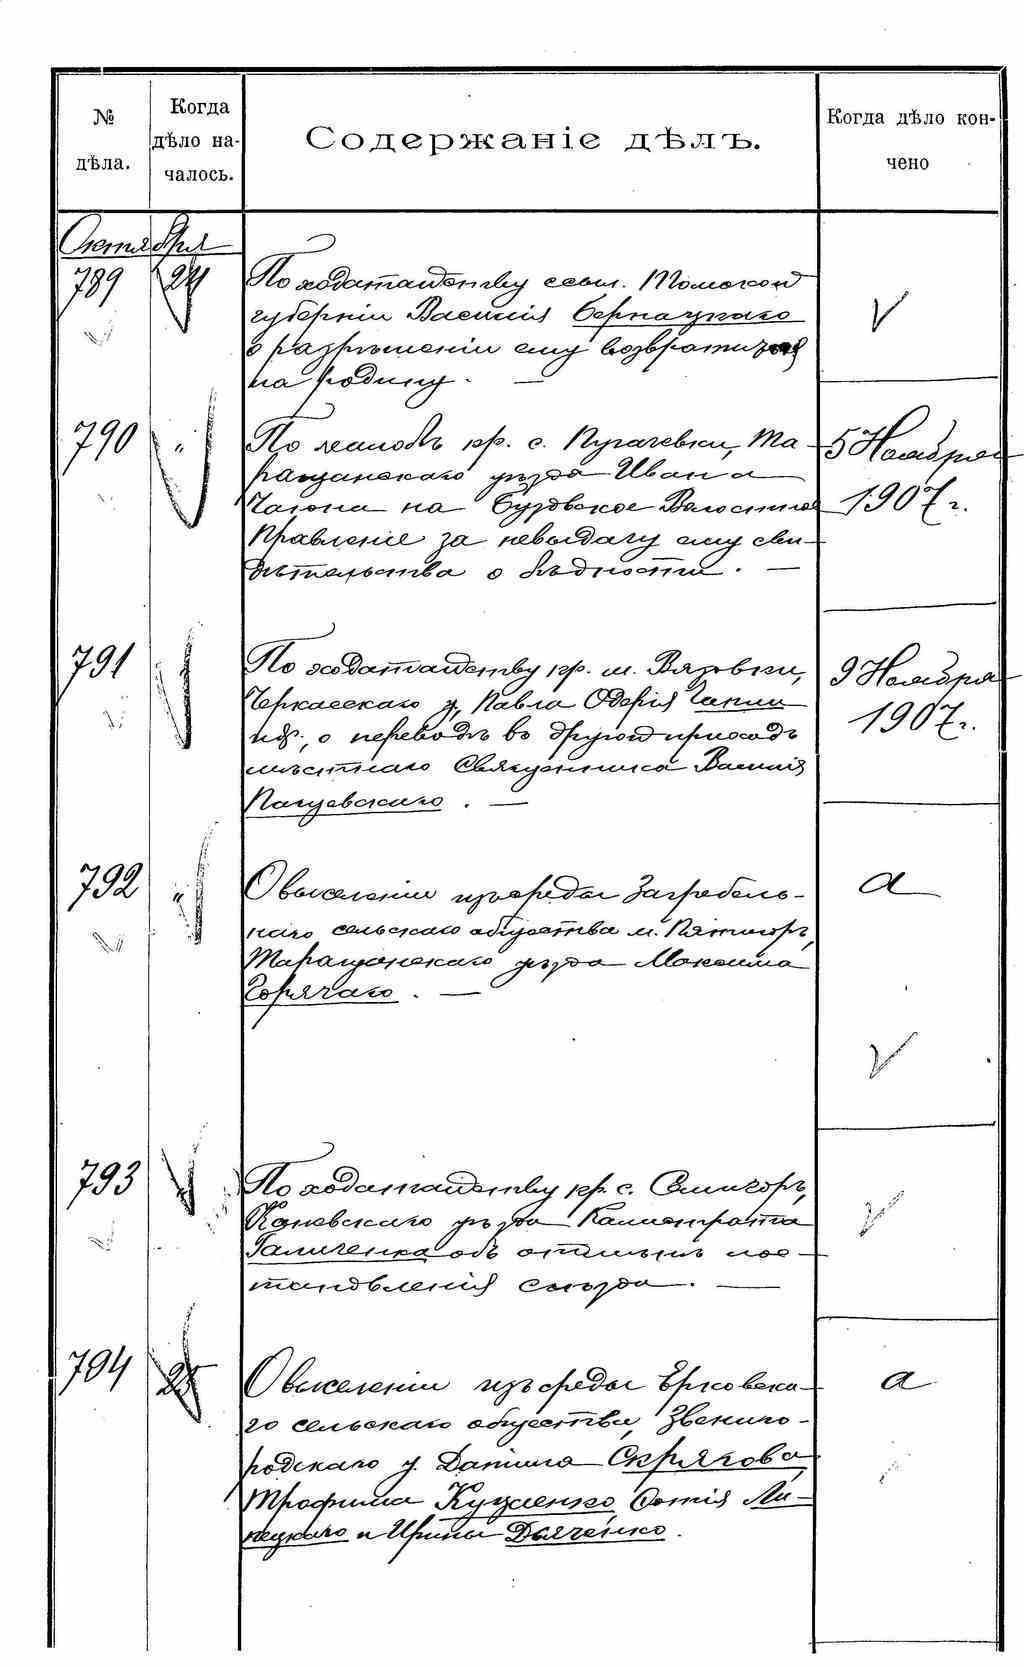 №
дѣла.
Когда
дѣло на-
чалось.
Содержаніе дѣлъ.
Когда дѣло кон-
чено
Октября
789 24 По ходатайству ссыл. Томской
губерніи Василія Бернацкаго
о разрѣшеніи ему возвратиться
на родину. —
790 " По жалобѣ кр. с. Пугачевки, Та-
ращанскаго уѣзда Ивана
на Бузовское Волостное
Правленіе за невыдачу ему сви-
дѣтельства о бѣдности. —
5 Ноября
1907 г.
791 По ходатайству кр. м. Вязовки,
Черкасскаго у., Павла
и др., о переводѣ въ другой приходъ
мѣстнаго Священника Василія
9 Ноября
1907 г.
792 " О выселеніи изъ среды Загребель-
наго сельскаго общества м. Пятигоръ,
Таращанскаго уѣзда Максима
Горячаго. —
а
793 По ходатайству кр. с. Селигоръ,
Каневскаго уѣзда Калистрата
Галиченка объ отмѣнѣ пос-
тановленія съѣзда. —
794 25 О выселеніи изъ среды Ерковска-
го сельскаго общества, Звениго-
родскаго у. Даніила Скрякова,
Трофима Куценко, Фотія Ли-
пецкаго и Ирины Дьяченко.
а